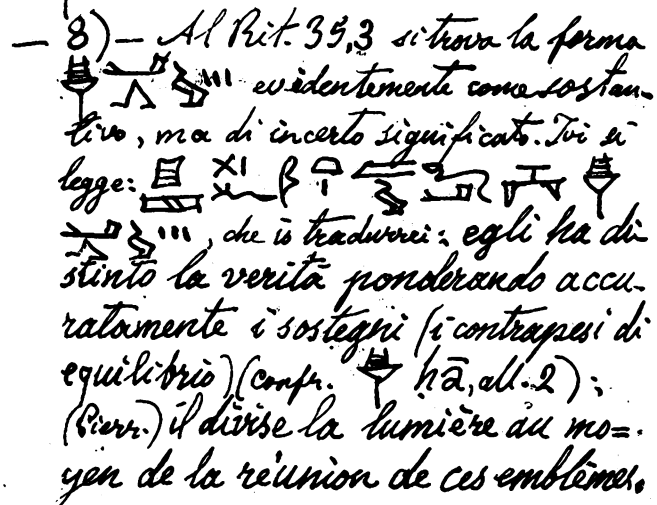 — 8) — Al Rit. 35,3 si trova la forma
evidentemente come sostan-
tivo, ma di incerto significato. Ivi si
legge:
, che io tradurrei: egli ha di
stinto la verità ponderando accu-
ratamente i sostegni (i contrapesi di
equilibrio) (confr. hā, all. 2);
(Pierr.) il divise la lumière au mo=
yen de la réunion de ces emblèmes.